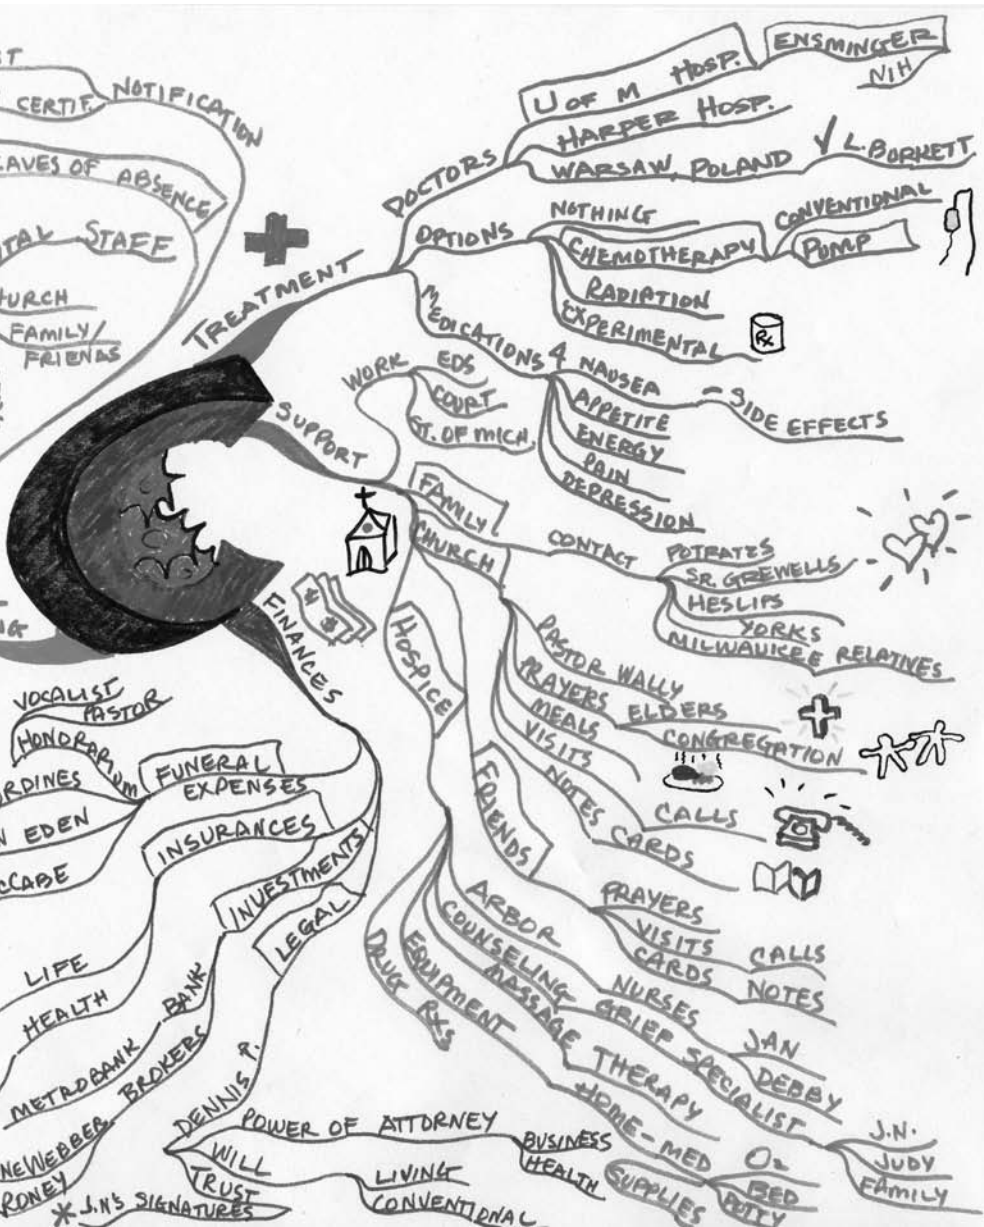 NOTIFICATION
CERTIF.
LEAVES OF ABSENCE
STAFF
CHURCH
FAMILY/
FRIENDS
TREATMENT
DOCTORS
U OF M HOSP.
ENSMINGER
NIH
HARPER HOSP.
WARSAW, POLAND
√ L. BORKETT
OPTIONS
NOTHING
CHEMOTHERAPY
CONVENTIONAL
PUMP
RADIATION
EXPERIMENTAL
Rx
MEDICATIONS 4 NAUSEA - SIDE EFFECTS
APPETITE
ENERGY
PAIN
DEPRESSION
SUPPORT
WORK
EDS
COURT
ST. OF MICH.
FAMILY
CONTACT
POTRATZS
SR. GREWELLS
HESLIPS
YORKS
MILWAUKEE RELATIVES
CHURCH
PASTOR WALLY
PRAYERS ELDERS
CONGREGATION
MEALS
VISITS
NOTES CALLS
CARDS
FRIENDS
PRAYERS
VISITS CALLS
CARDS NOTES
HOSPICE
ARBOR NURSES
JAN
DEBBY
COUNSELING GRIEF SPECIALIST
J.N.
JUDY
FAMILY
MASSAGE THERAPY
EQUIPMENT HOME-MED
O2
BED
POTTY
SUPPLIES
DRUG RXS
FINANCES
$
$
FUNERAL
EXPENSES
HONORARIUM
VOCALIST
PASTOR
EDEN
INSURANCES
LIFE
HEALTH
INVESTMENTS
BANK
METROBANK
BROKERS
LEGAL
DENNIS P.
POWER OF ATTORNEY
BUSINESS
HEALTH
WILL
LIVING
CONVENTIONAL
TRUST
* J.N'S SIGNATURES